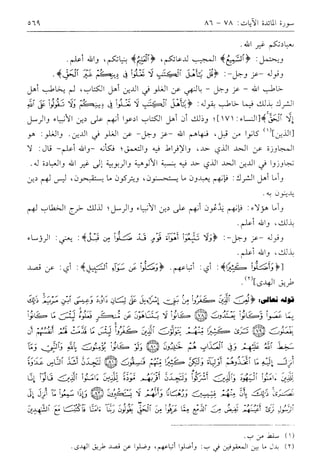 سورة المائدة الآيات: ٧٨ - ٨٦
٥٦٩
بعبادتكم غير الله.
ويحتمل: ﴿السَّمِيعُ﴾ المجيب لدعائكم، ﴿الْعَلِيمُ﴾ بنياتكم، والله أعلم.
وقوله - عز وجل -: ﴿قُلْ يَا أَهْلَ الْكِتَابِ لَا تَغْلُوا فِي دِينِكُمْ غَيْرَ الْحَقِّ﴾.
خاطب الله - عز وجل - بالنهي عن الغلو في الدين أهل الكتاب، لم يخاطب أهل
الشرك بذلك فيما خاطب بقوله: ﴿يَا أَهْلَ الْكِتَابِ لَا تَغْلُوا فِي دِينِكُمْ وَلَا تَقُولُوا عَلَى اللَّهِ
إِلَّا الْحَقَّ﴾ [النساء: ١٧١]؛ وذلك أن أهل الكتاب ادعوا أنهم على دين الأنبياء والرسل
[الذين](١) كانوا من قبل، فنهاهم الله - عز وجل- عن الغلو في الدين. والغلو: هو
المجاوزة عن الحد الذي حد، والإفراط فيه والتعمق؛ فكأنه -والله أعلم- قال: لا
تجاوزوا في الدين الحد الذي حد فيه بنسبة الألوهية والربوبية إلى غير الله والعبادة له.
وأما أهل الشرك: فإنهم يعبدون ما يستحسنون، ويتركون ما يستقبحون، ليس لهم دين
يدينون به.
وأما هؤلاء: فإنهم يَدَّعُون أنهم على دين الأنبياء والرسل؛ لذلك خرج الخطاب لهم
بذلك، والله أعلم.
وقوله -عز وجل-: ﴿وَلَا تَتَّبِعُوا أَهْوَاءَ قَوْمٍ قَدْ ضَلُّوا مِنْ قَبْلُ﴾: يعني: الرؤساء
[﴿وَأَضَلُّوا كَثِيرًا﴾ أي: أتباعهم. ﴿وَضَلُّوا عَنْ سَوَاءِ السَّبِيلِ﴾: أي: عن قصد
طريق الهدى](٢).
قوله تعالى: ﴿لُعِنَ الَّذِينَ كَفَرُوا مِنْ بَنِي إِسْرَائِيلَ عَلَى لِسَانِ دَاوُودَ وَعِيسَى ابْنِ مَرْيَمَ ذَلِكَ
بِمَا عَصَوْا وَكَانُوا يَعْتَدُونَ كَانُوا لَا يَتَنَاهَوْنَ عَنْ مُنْكَرٍ فَعَلُوهُ لَبِئْسَ مَا كَانُوا
يَفْعَلُونَ تَرَى كَثِيرًا مِنْهُمْ يَتَوَلَّوْنَ الَّذِينَ كَفَرُوا لَبِئْسَ مَا قَدَّمَتْ لَهُمْ أَنْفُسُهُمْ أَنْ
سَخِطَ اللَّهُ عَلَيْهِمْ وَفِي الْعَذَابِ هُمْ خَالِدُونَ وَلَوْ كَانُوا يُؤْمِنُونَ بِاللَّهِ وَالنَّبِيِّ وَمَا
أُنْزِلَ إِلَيْهِ مَا اتَّخَذُوهُمْ أَوْلِيَاءَ وَلَكِنَّ كَثِيرًا مِنْهُمْ فَاسِقُونَ لَتَجِدَنَّ أَشَدَّ النَّاسِ عَدَاوَةً
لِلَّذِينَ آمَنُوا الْيَهُودَ وَالَّذِينَ أَشْرَكُوا وَلَتَجِدَنَّ أَقْرَبَهُمْ مَوَدَّةً لِلَّذِينَ آمَنُوا الَّذِينَ قَالُوا إِنَّا
نَصَارَى ذَلِكَ بِأَنَّ مِنْهُمْ قِسِّيسِينَ وَرُهْبَانًا وَأَنَّهُمْ لَا يَسْتَكْبِرُونَ وَإِذَا سَمِعُوا مَا أُنْزِلَ إِلَى
الرَّسُولِ تَرَى أَعْيُنَهُمْ تَفِيضُ مِنَ الدَّمْعِ مِمَّا عَرَفُوا مِنَ الْحَقِّ يَقُولُونَ رَبَّنَا آمَنَّا فَاكْتُبْنَا مَعَ الشَّاهِدِينَ
(١) سقط من ب.
(٢) بدل ما بين المعقوفين في ب: وأضلوا أتباعهم، وضلوا عن قصد طريق الهدى.